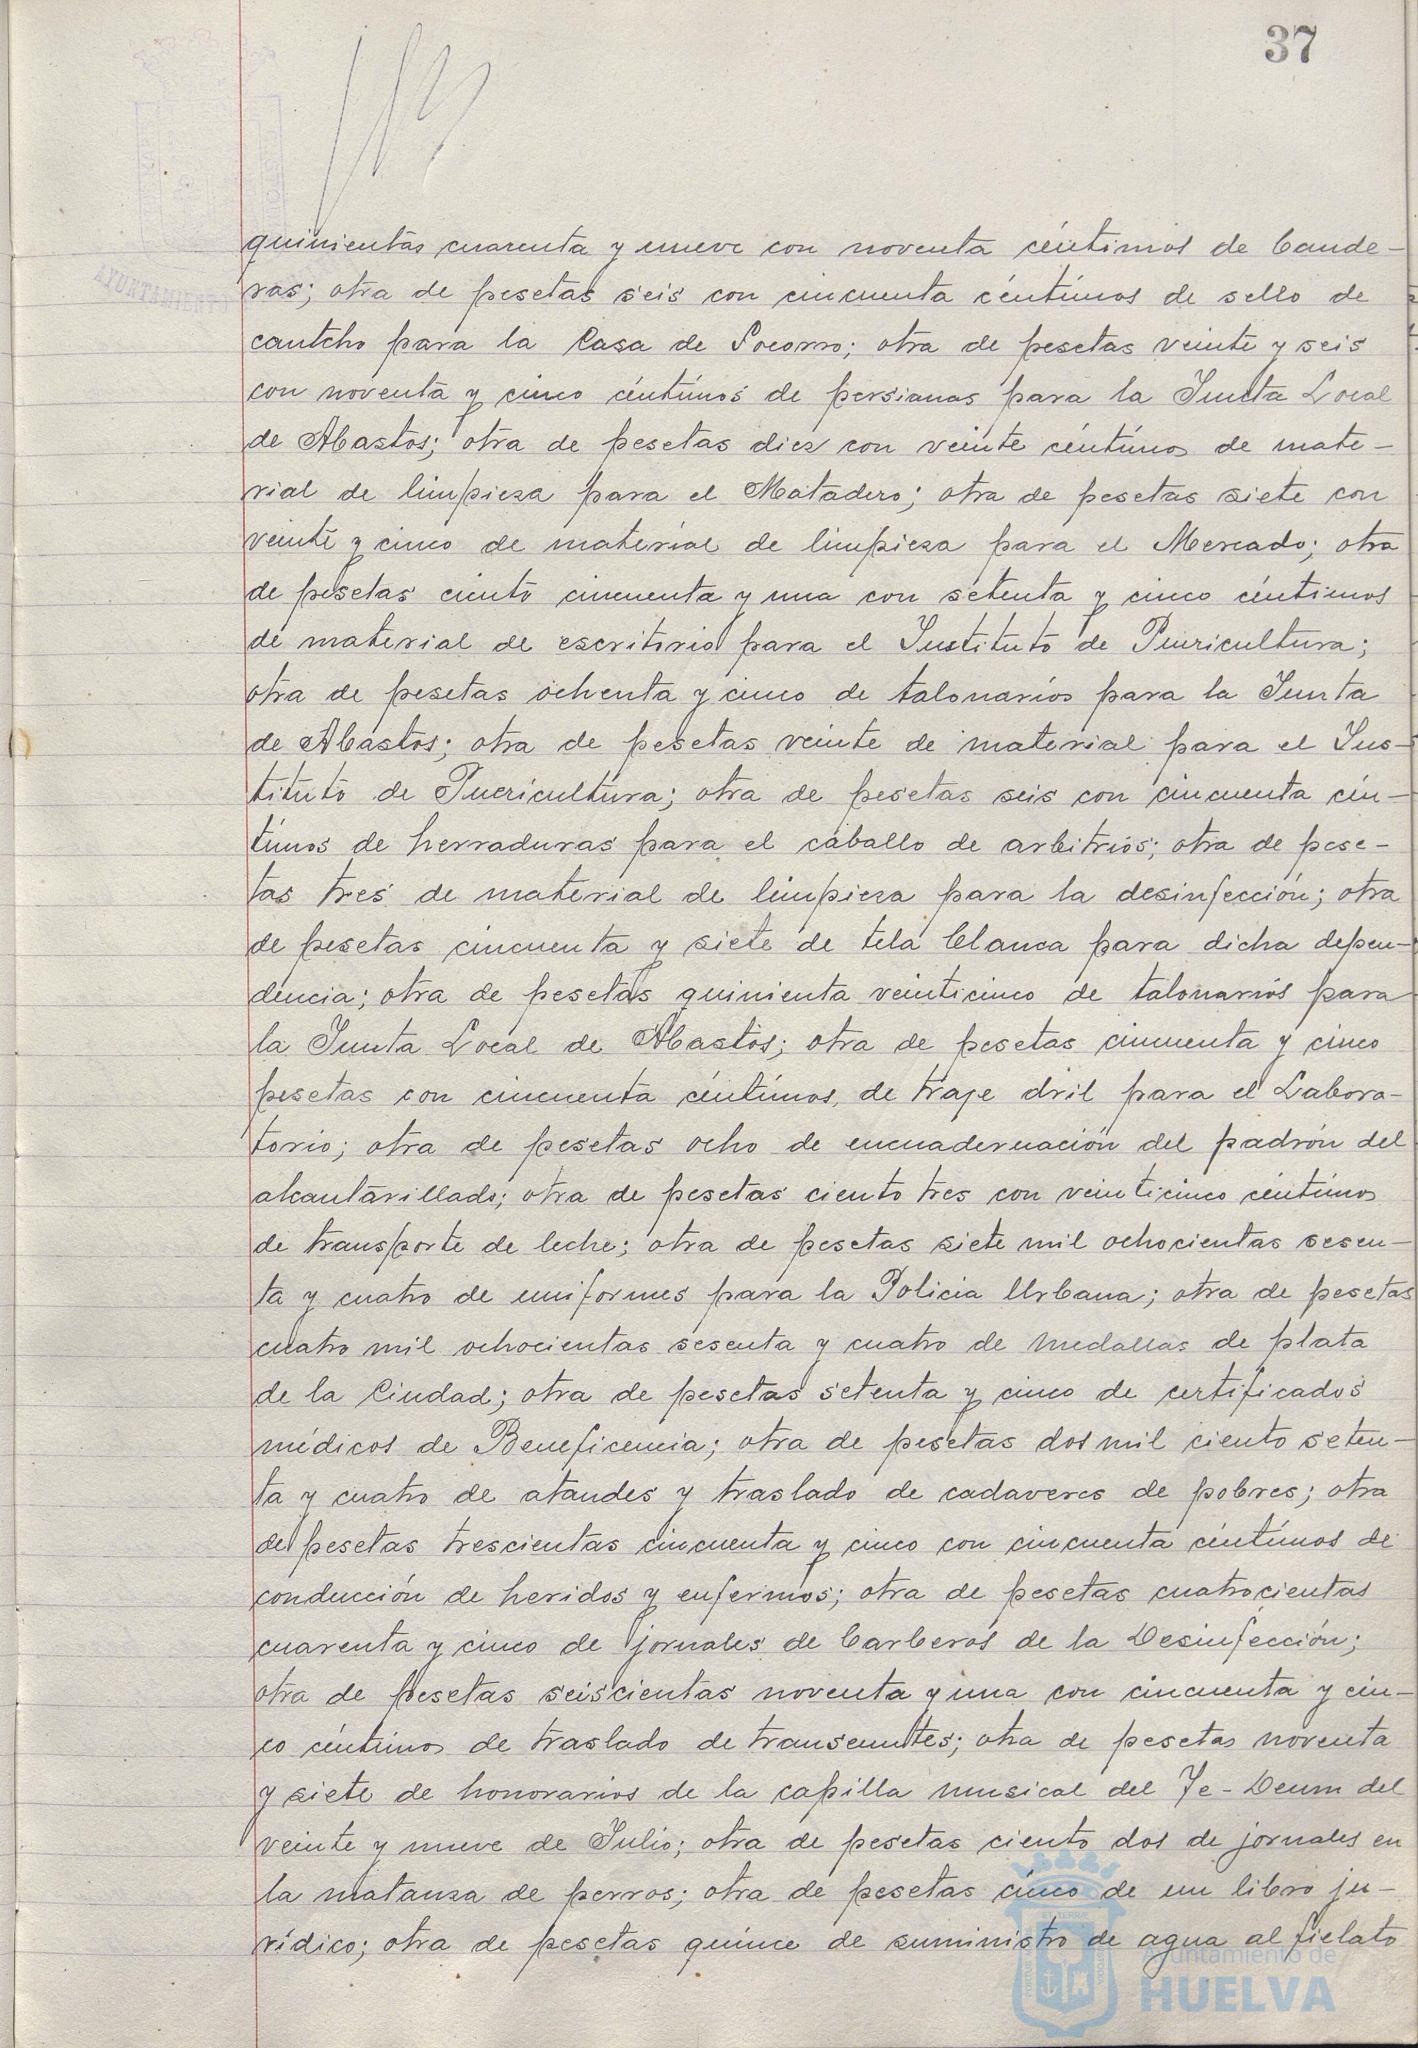 37
AYUNTAMIENTO
quinientas cuarenta y nueve con noventa céntimos de bande-
ras; otra de pesetas seis con cincuenta céntimos de sello de
cautcho para la Casa de Socorro; otra de pesetas veinte y seis
con noventa y cinco céntimos de persianas para la Junta Local
de Abastos; otra de pesetas diez con veinte céntimos de mate-
rial de limpieza para el Matadero; otra de pesetas siete con
veinte y cinco de material de limpieza para el Mercado; otra
de pesetas ciento cincuenta y una con setenta y cinco céntimos
de material de escritorio para el Instituto de Puericultura;
otra de pesetas ochenta y cinco de talonarios para la Junta
de Abastos; otra de pesetas veinte de material para el Ins-
tituto de Puericultura; otra de pesetas seis con cincuenta cén-
timos de herraduras para el caballo de arbitrios; otra de pese-
tas tres de material de limpieza para la desinfección; otra
de pesetas cincuenta y siete de tela blanca para dicha depen-
dencia; otra de pesetas quinienta veinticinco de talonarios para
la Junta Local de Abastos; otra de pesetas cincuenta y cinco
pesetas con cincuenta céntimos, de traje dril para el Labora-
torio; otra de pesetas ocho de encuadernación del padrón del
alcantarillado; otra de pesetas ciento tres con veinticinco céntimos
de transporte de leche; otra de pesetas siete mil ochocientas sesen-
ta y cuatro de uniformes para la Policia Urbana; otra de pesetas
cuatro mil ochocientas sesenta y cuatro de medallas de plata
de la Ciudad; otra de pesetas setenta y cinco de certificados
médicos de Beneficencia; otra de pesetas dos mil ciento seten-
ta y cuatro de ataudes y traslado de cadaveres de pobres; otra
de pesetas trescientas cincuenta y cinco con cincuenta céntimos de
conducción de heridos y enfermos; otra de pesetas cuatrocientas
cuarenta y cinco de jornales de barberos de la Desinfección;
otra de pesetas seiscientas noventa y una con cincuenta y cin-
co céntimos de traslado de transeuntes; otra de pesetas noventa
y siete de honorarios de la capilla musical del Te-Deum del
veinte y nueve de Julio; otra de pesetas ciento dos de jornales en
la matanza de perros; otra de pesetas cinco de un libro ju-
rídico; otra de pesetas quince de suministro de agua al fielato
Ayuntamiento de
HUELVA